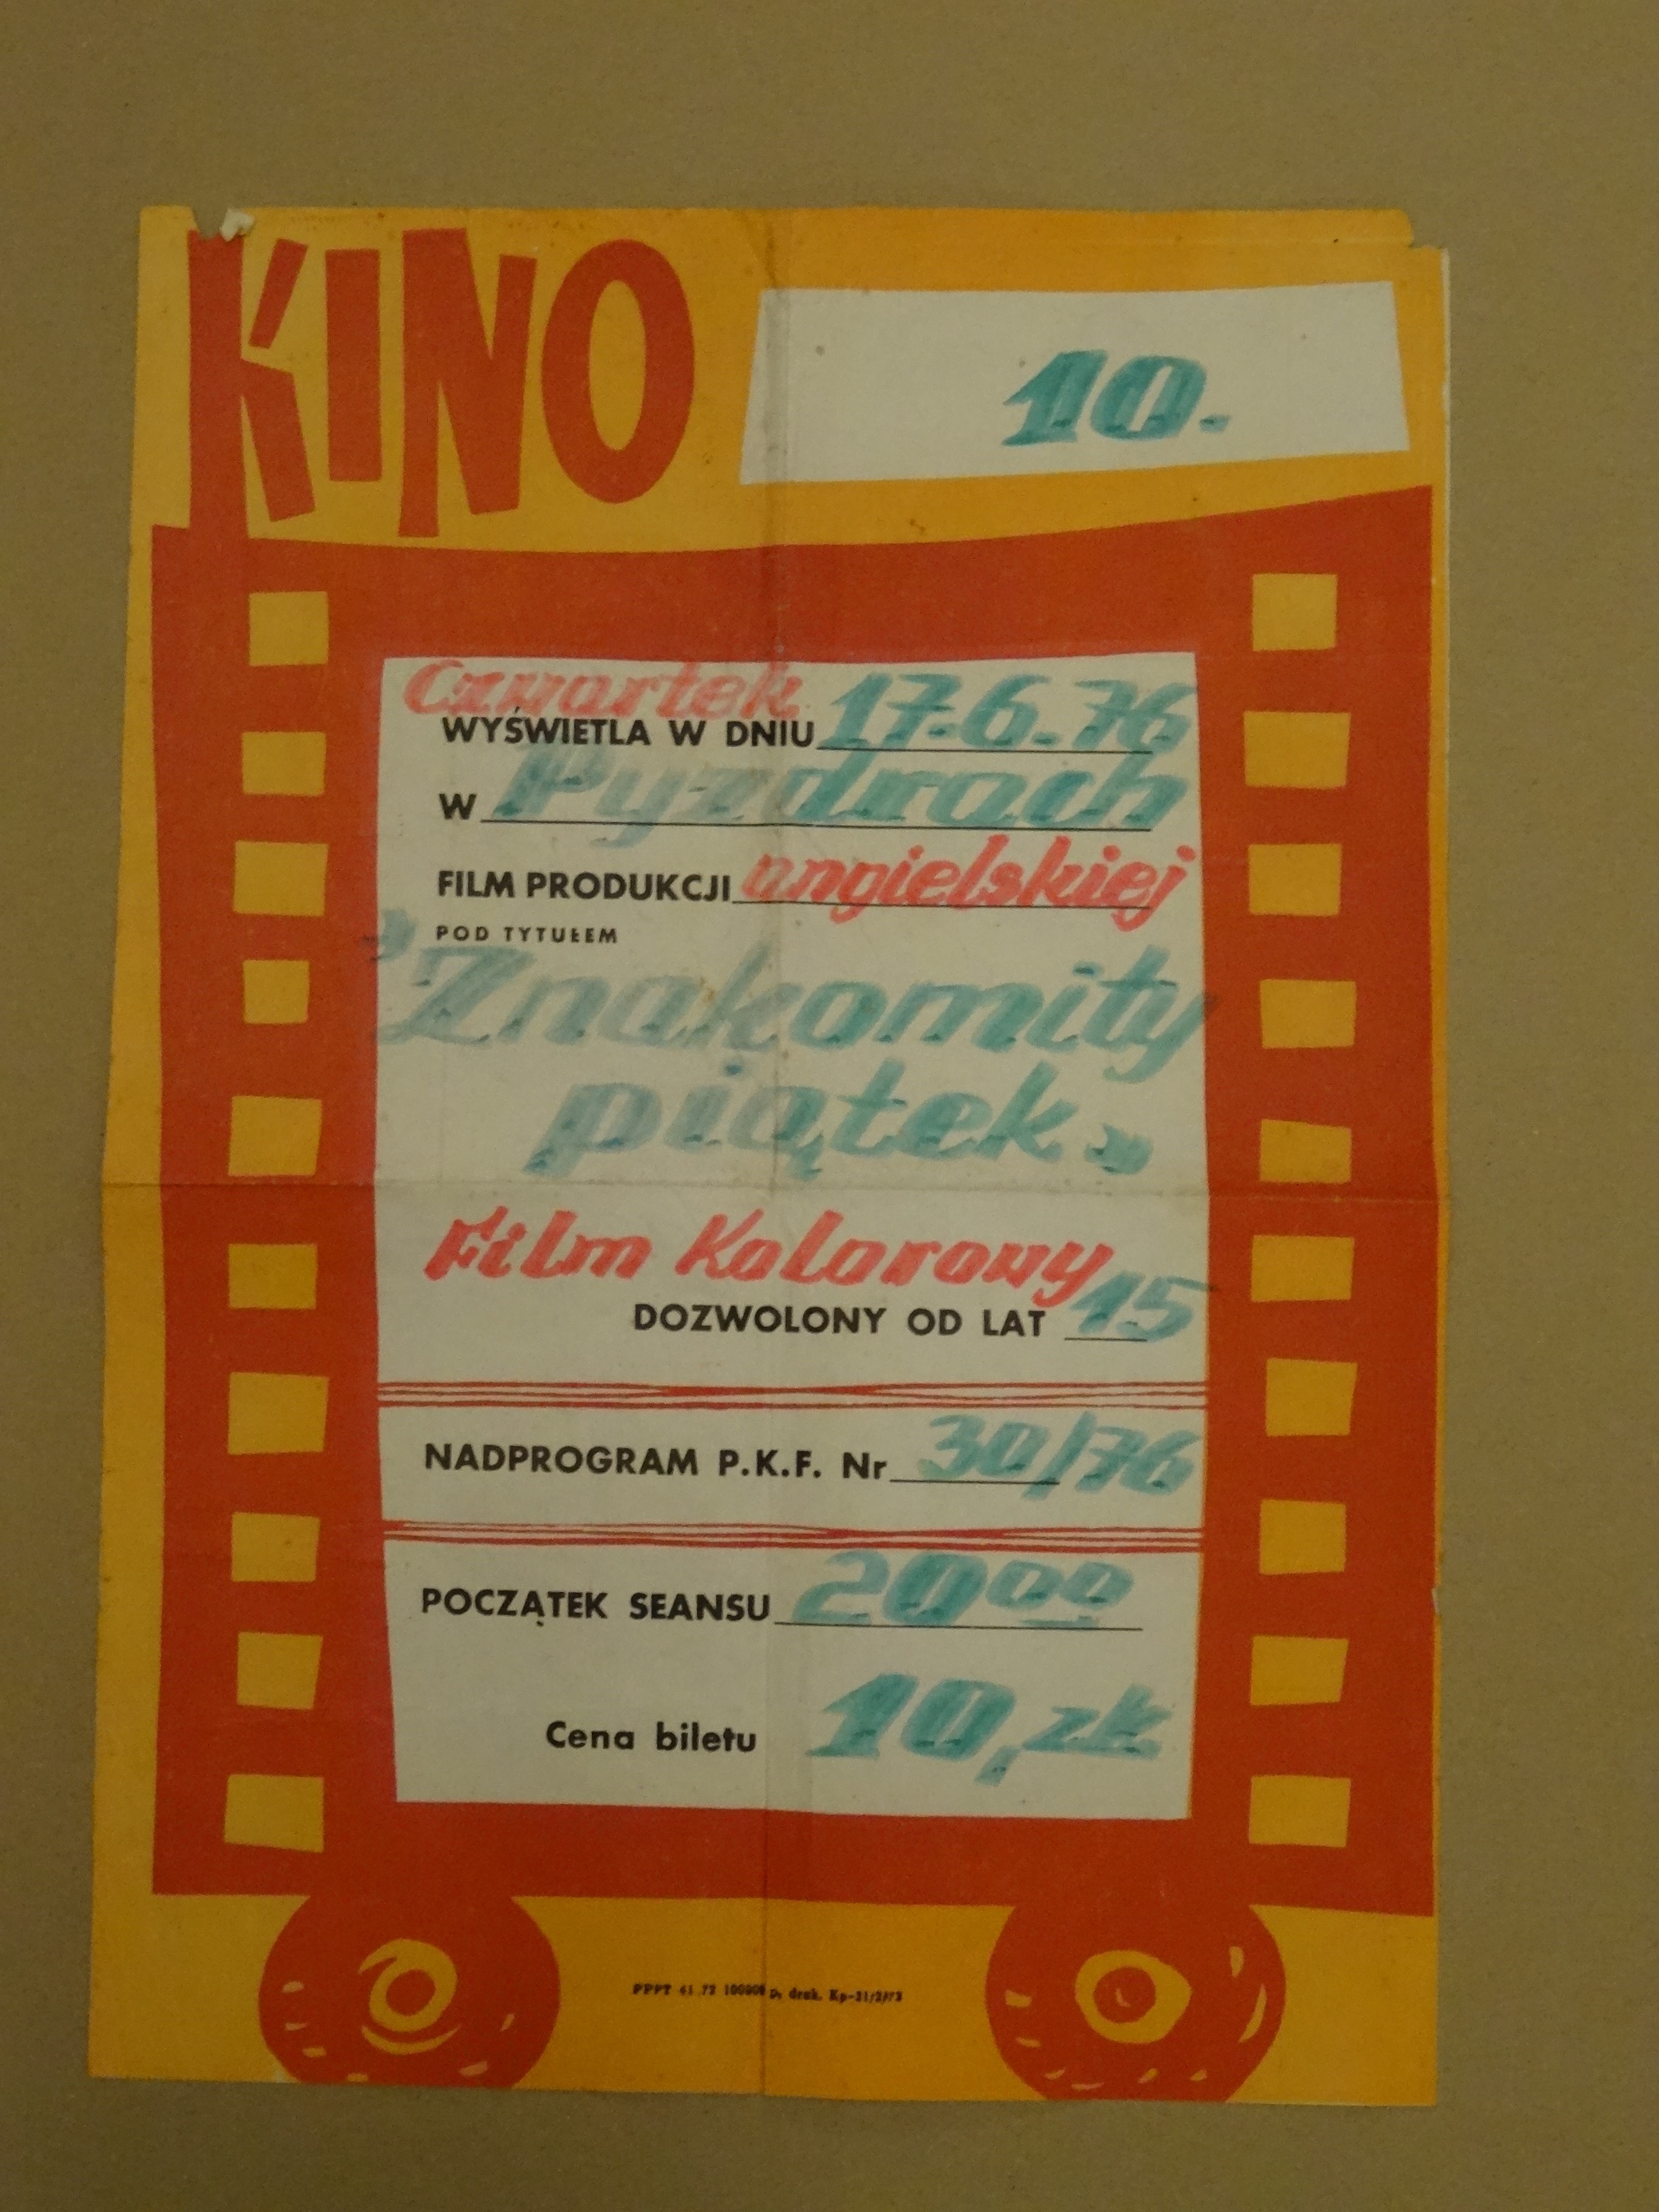 KINO
10.
Czwartek
WYŚWIETLA W DNIU 17.6.76
W Pyzdrach
FILM PRODUKCJI angielskiej
POD TYTUŁEM
"Znakomity
piątek"
Film Kolorowy
DOZWOLONY OD LAT 15
NADPROGRAM P.K.F. Nr 30/76
POCZĄTEK SEANSU 20⁰⁰
Cena biletu 10, zł
PPPT 41 73 p, druk. Kp-31/2/73